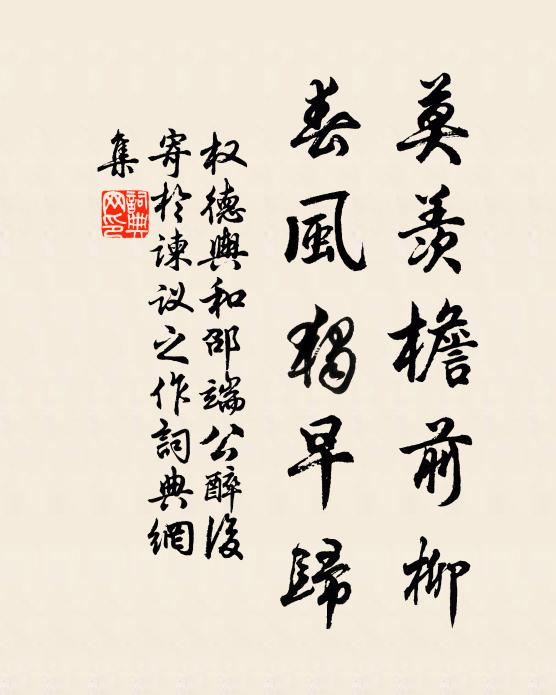 莫羨檐前柳
春風獨早歸
权德輿和邵端公醉後
寄於谏议之作詞典網
集
詞典
网印